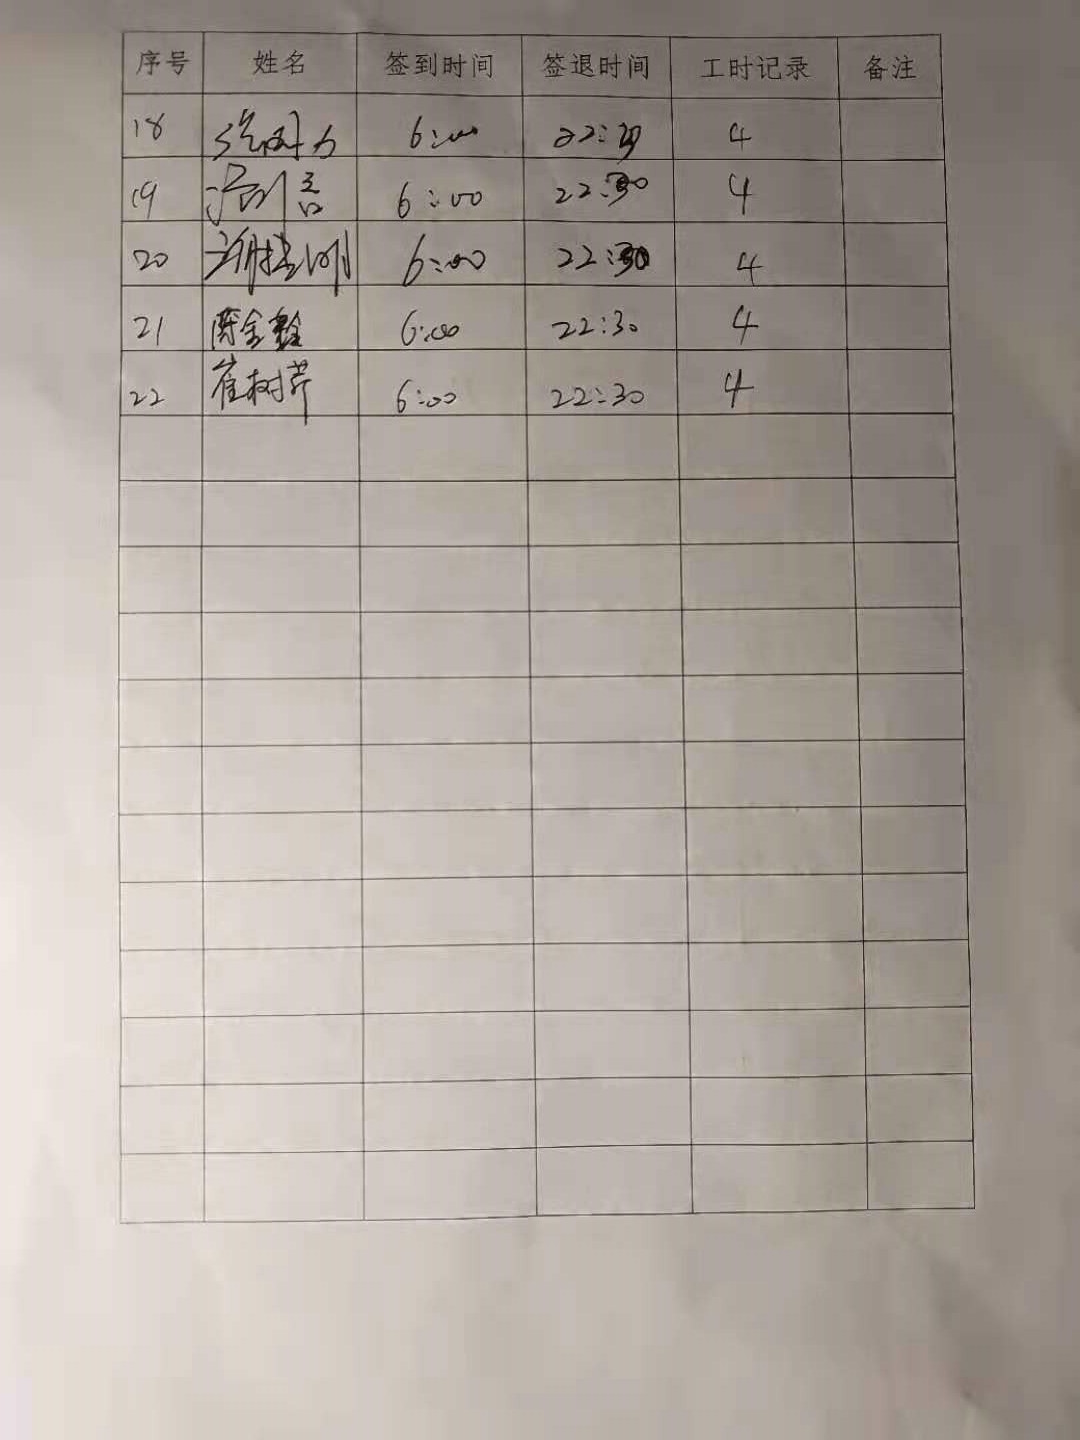 序号 姓名 签到时间 签退时间 工时记录 备注
18 6:00 22:30 4
19 6:00 22:30 4
20 6:00 22:30 4
21 陈金銮 6:00 22:30 4
22 崔树芹 6:00 22:30 4